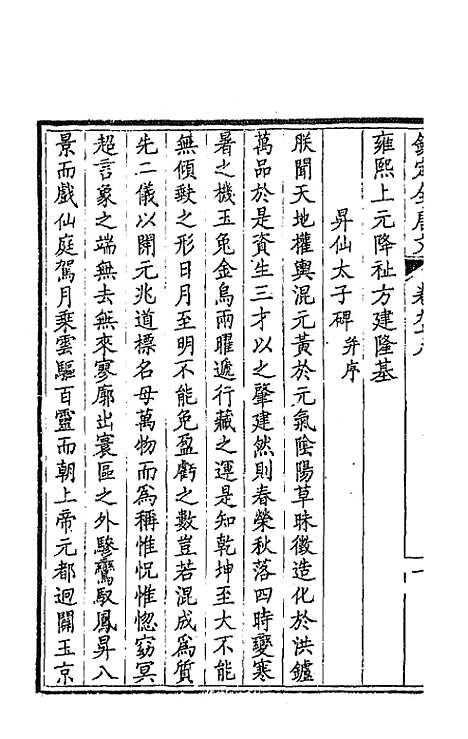 雍熙上元降祉方建隆基
昇仙太子碑并序
朕聞天地權輿混元黃於元氣陰陽草昧徵造化於洪鑪
萬品於是資生三才以之肇建然則春榮秋落四時變寒
暑之機玉兔金烏兩曜遞行藏之運是知乾坤至大不能
無傾敧之形日月至明不能免盈虧之數豈若混成爲質
先二儀以開元兆道標名母萬物而爲稱惟怳惟惚窈冥
超言象之端無去無來寥廓出寰區之外驂鸞馭鳳昇八
景而戲仙庭駕月乘雲驅百靈而朝上帝元都迥闢玉京